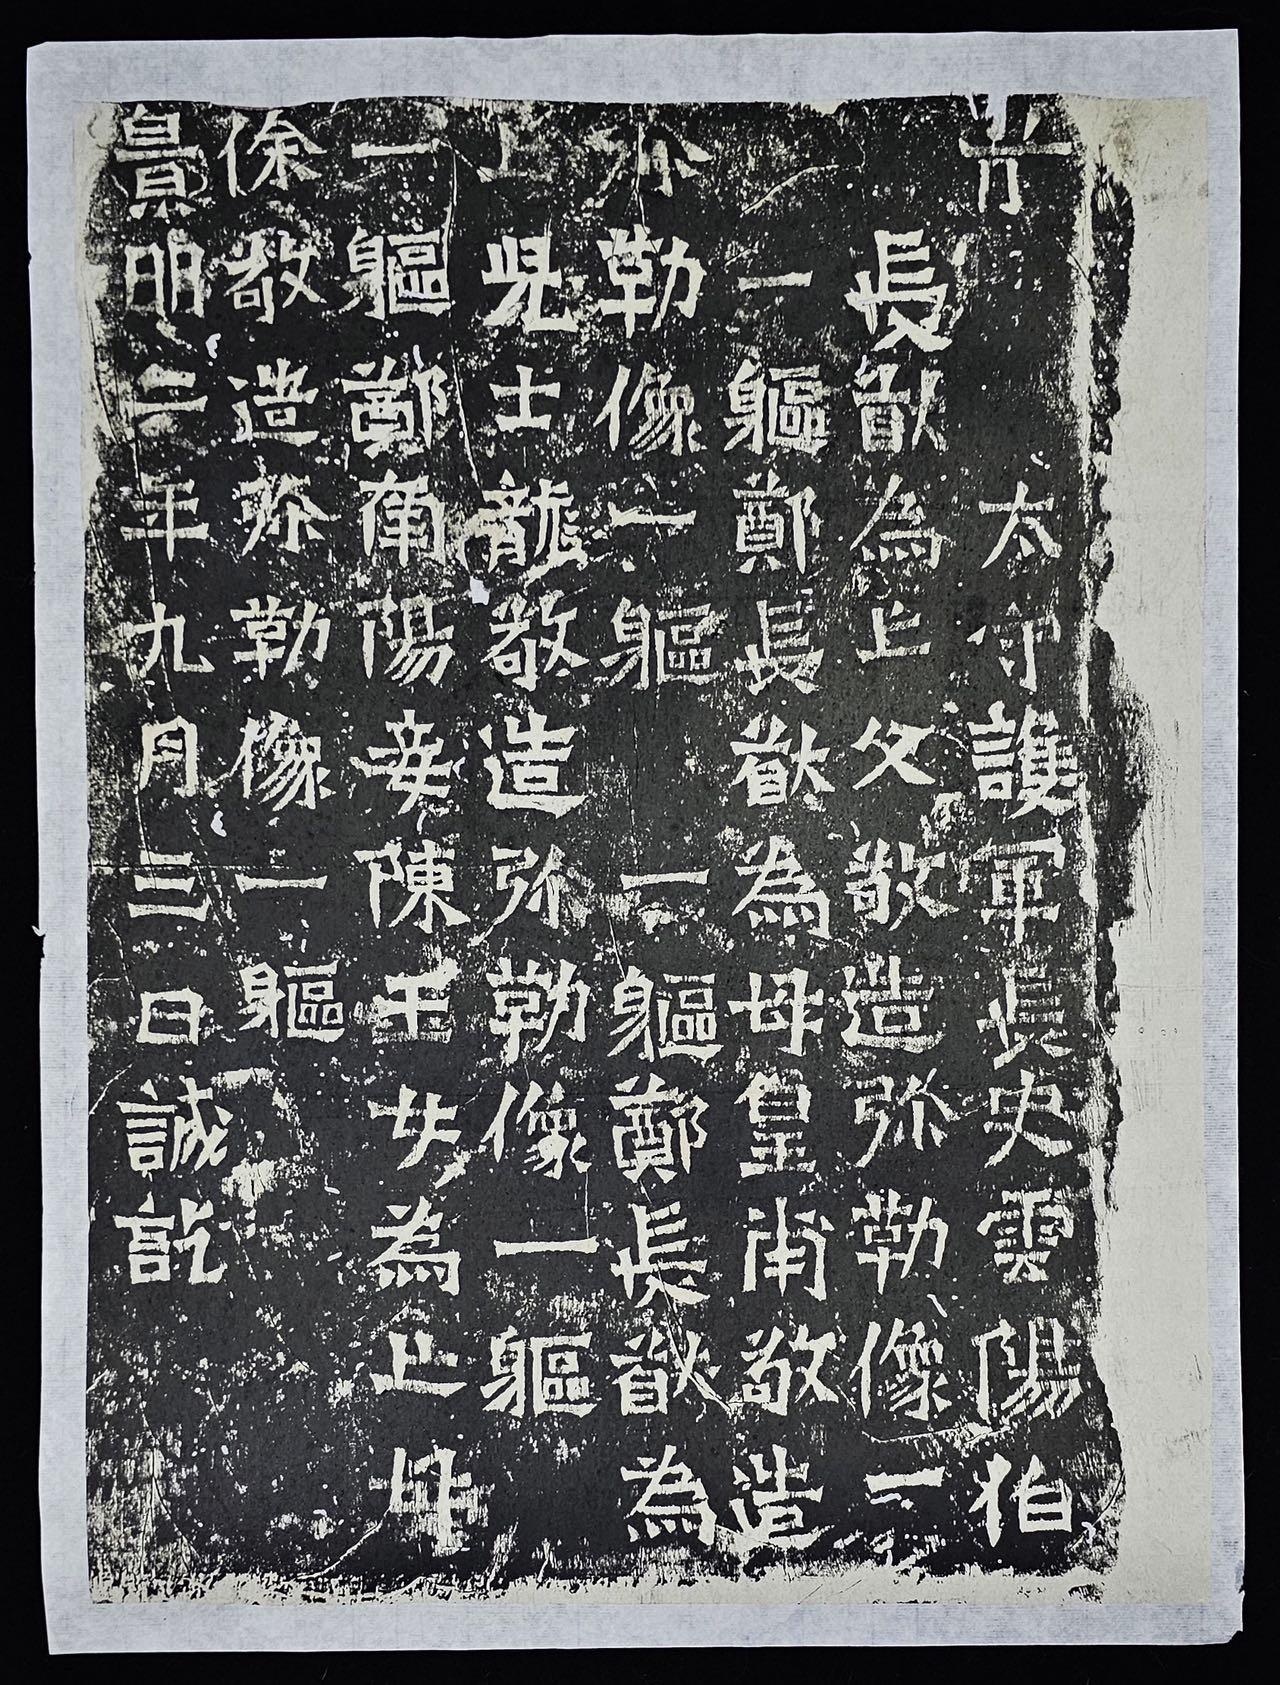 前太守護軍長史雲陽伯
長猷為亡父敬造弥勒像一
一軀鄭長猷為母皇甫敬造
弥勒像一軀 一軀鄭長猷為
亡兒士龍敬造弥勒像一軀
一軀鄭南陽妾陳玉女為亡母
徐敬造弥勒像一軀
景明二年九月三日誡訖